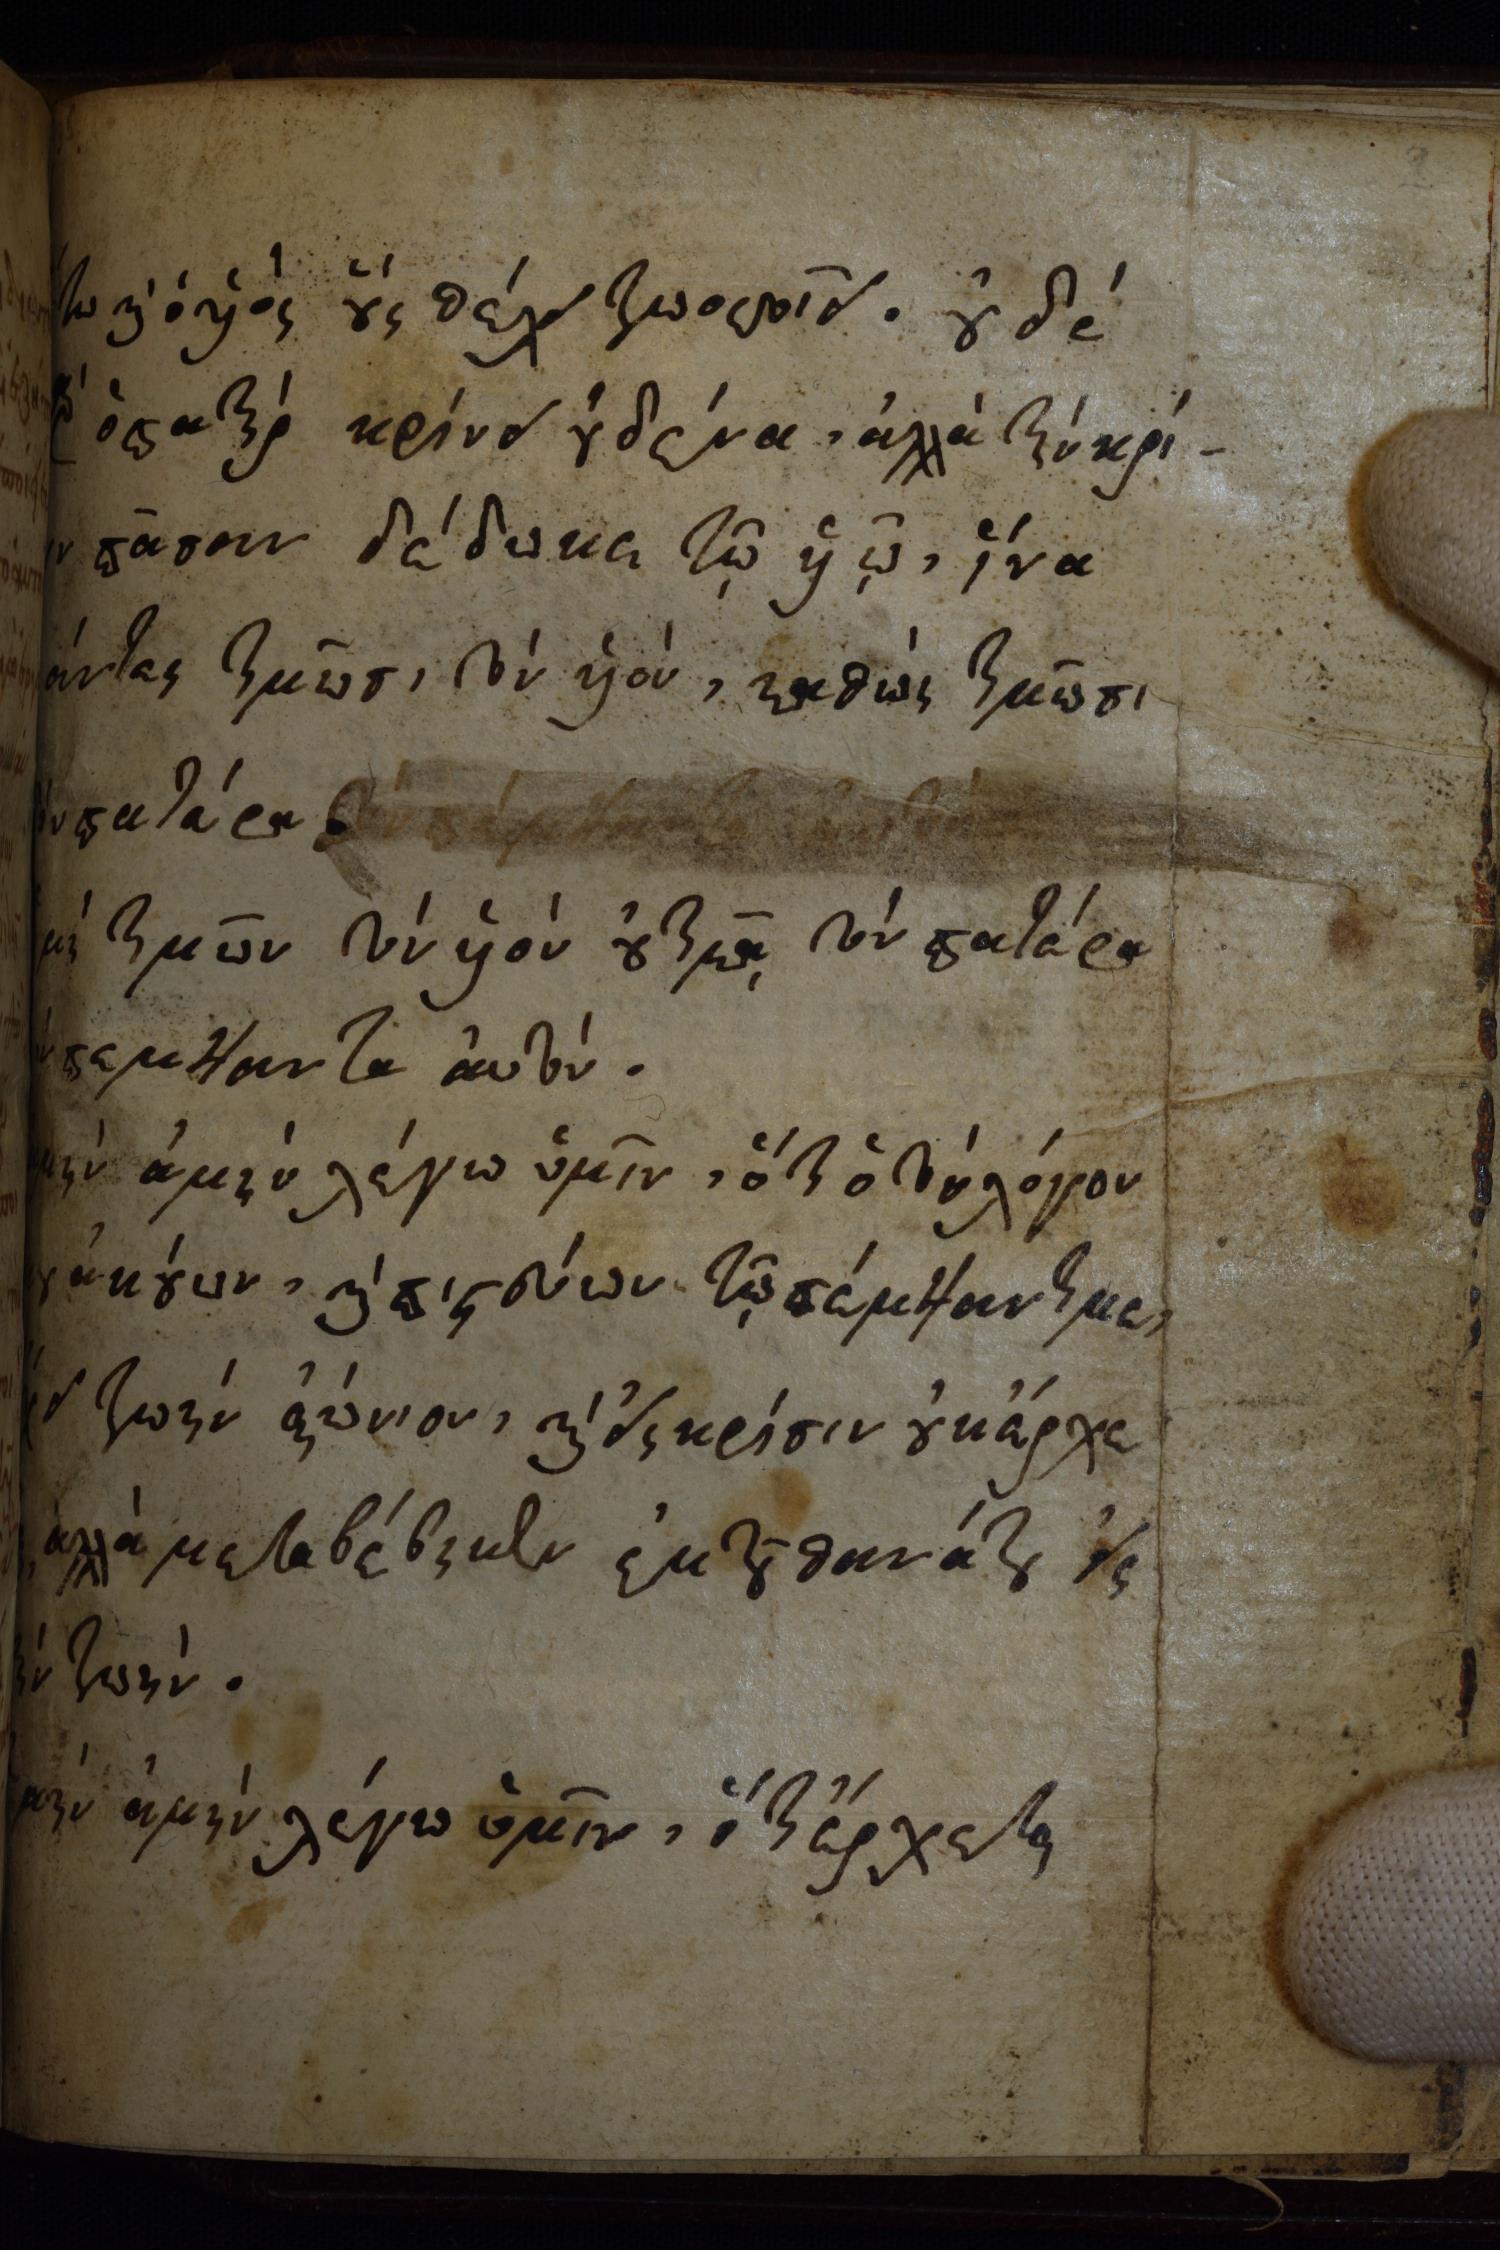 τω καὶ ὁ ὑιὸς οὓς θέλει ζωοποιεῖ. οὐδέ
ὁ πατὴρ κρίνει οὐδένα, ἀλλὰ τὴν κρί-
ιν πᾶσαν δέδωκε τῷ ὑιῷ, ἵνα
άντες τιμῶσι τὸν ὑιόν, καθὼς τιμῶσι
όν πατέρα.
μὴ τιμῶν τὸν ὑιὸν οὐ τιμᾷ τὸν πατέρα
όν πέμψαντα ἀυτόν.
μὴν ἀμὴν λέγω ὑμῖν, ὅτι ὁ τὸν λόγον
ου ἀκούων, καὶ πιστεύων τῷ πέμψαντί με,
ει ζωὴν αἰώνιον, καὶ εἰς κρίσιν οὐκ ἔρχε
, ἀλλὰ μεταβέβηκεν ἐκ τοῦ θανάτου εἰς
ὴν ζωήν.
μὴν ἀμὴν λέγω ὑμῖν, ὅτι ἔρχεται